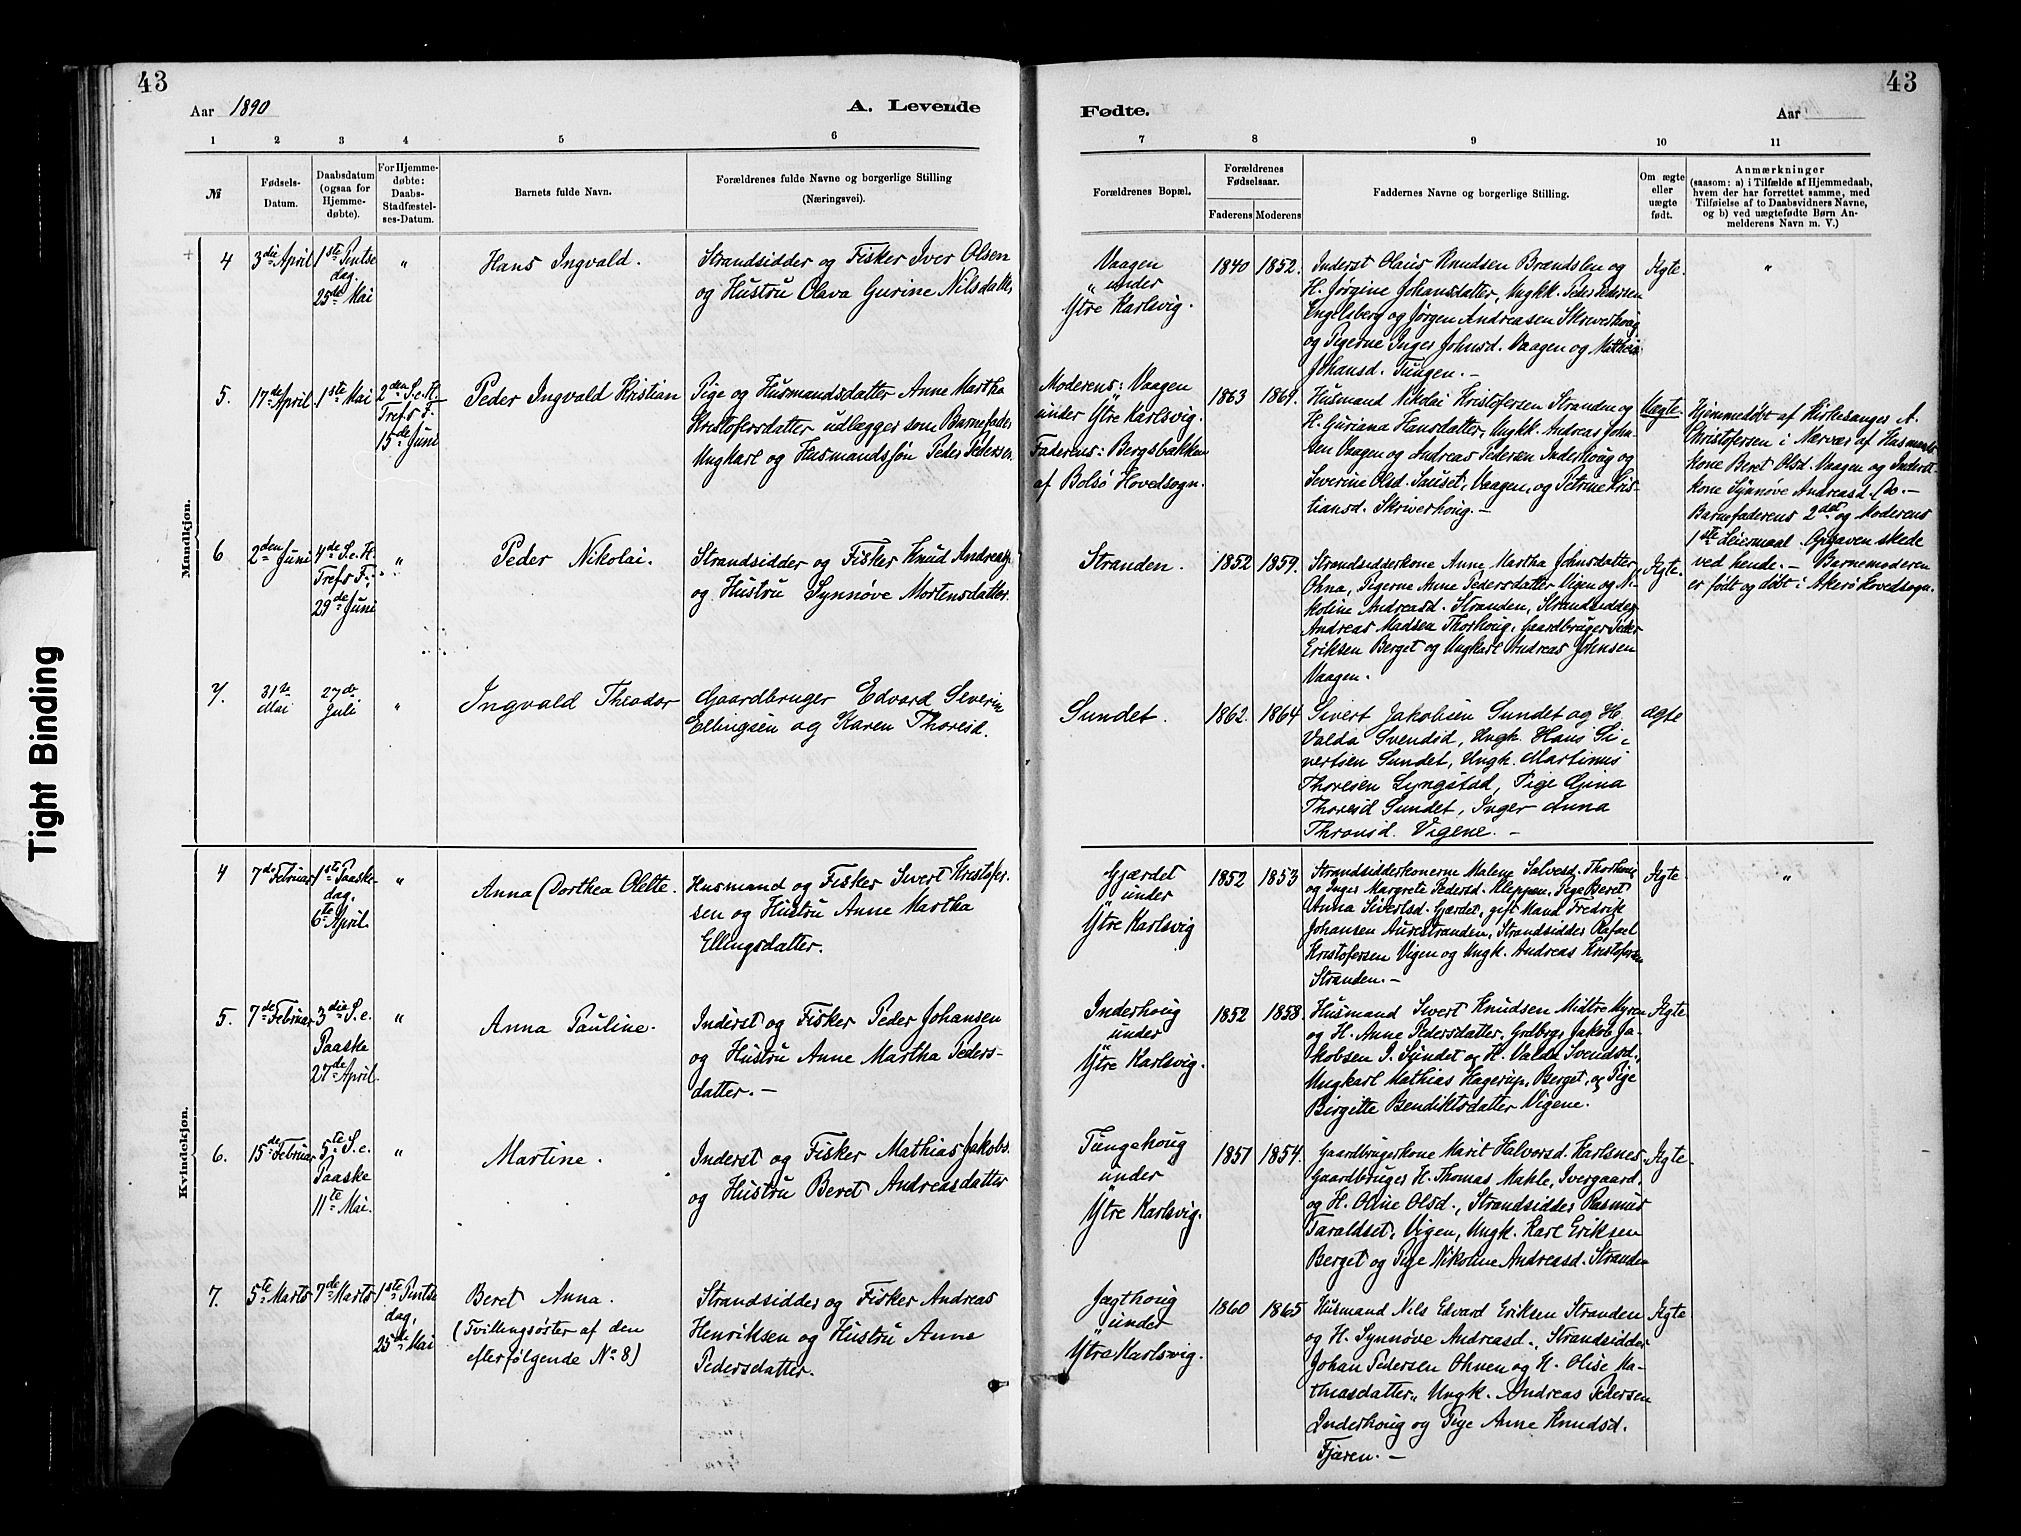 43
Aar 1890
A. Levende
1 2 3 4 5 6
№
Fødsels-
Datum.
Daabsdatum
(ogsaa for
Hjemme-
døbte).
For Hjemme-
døbte:
Daabs-
Stadfæstel-
ses-Datum.
Barnets fulde Navn.
Forældrenes fulde Navne og borgerlige Stilling
(Næringsvei).
Mandkjøn.
4
3die April
1ste Pintse
dag.
25de Mai
"
Hans Ingvald.
Strandsidder og Fisker Iver Olsen
og Hustru Olava Gurine Nilsdatter
5.
17de April
1ste Mai
2den S. e. H.
Tref. F.
15de Juni
Peder Ingvald Kristian
Pige og Husmandsdatter Anne Martha
Kristofersdatter udlægger som Barnefader
Ungkarl og Husmandssøn Peder Pedersen
6
2den Juni
4de S. e. H.
Tref. F.
29de Juni
"
Peder Nikolai.
Strandsidder og Fisker Knud Andreas
og Hustru Synnøve Mortensdatter
7.
31te
Mai
27de
Juli
"
Ingvald Theodor
Gaardbruger Edvard Severin
Ellingsen og Karen Thoresd.
Kvindekjøn.
4
7de Februar
1ste Paaske-
dag.
6te April
"
Anna Dorthea Olette.
Husmand og Fisker Sivert Kristofer-
sen og Hustru Anne Martha
Ellingsdatter.
5.
7de Februar
3die S. e.
Paaske
27de April
"
Anna Pauline.
Inderst og Fisker Peder Johansen
og Hustru Anne Martha Peders-
datter. —
6.
15de Februar
5te S. e.
Paaske
11te Mai.
"
Martine.
Inderst og Fisker Mathias Jakobs.
og Hustru Beret Andreasdatter
7.
5te Marts
7de Marts
1ste Pintse
dag,
25de Mai
Beret Anna.
(Tvillingsøster af den
efterfølgende No 8)
Strandsidder og Fisker Andreas
Henriksen og Hustru Anne
Pedersdatter.
Tight Binding
43
Fødte.
Aar
7 8 9 10 11
Forældrenes Bopæl.
Forældrenes
Fødselsaar.
Faderens Moderens
Faddernes Navne og borgerlige Stilling.
Om ægte
eller
uægte
født.
Anmærkninger
(saasom: a) i Tilfælde af Hjemmedaab,
hvem der har forrettet samme, med
Tilføielse af to Daabsvidners Navne,
og b) ved uægtefødte Børn An-
melderens Navn m. V.)
Vaagen
under
Ytre Karlsvig.
1840 1852.
Inderst Olaus Knudsen Brændslen og
H. Jørgine Johansdatter, Ungk. Peder Pedersen
Engelsberg og Jørgen Andreasen Skriverhoug
og Pigerne Inger Johnsd. Vaagen og
Johansd. Tungen. —
Ægte.
"
Moderens: Vaagen
under Ytre Karlsvig.
Faderens: Bergsbakken
af Bolsø Hovedsogn.
1863 1869.
Husmand Nikolai Kristofersen Stranden og
H. Guriana Hansdatter, Ungk. Andreas John-
sen Vaagen og Andreas Pedersen Inderhoug og
Severine Olsd. Sauset, Vaagen, og Petrine Kris-
tiansd. Skriverhoug. —
Uægte.
Hjemmedøbt af Kirkesanger A.
Christofersen i Nærvær af Husmands-
kone Beret Olsd. Vaagen og Inderst-
kone Synnøve Andreasd. Do. —
Barnefaderens 2det og Moderens
1ste Leiermaal. Opgaven skede
ved hende. — Barnemoderen
er født og døbt i Akerø Hovedsogn.
Stranden.
1852 1859.
Strandsidderkone Anne Martha Johnsdatter
Ohna, Pigerne Anne Pedersdatter Vigen og Ni-
koline Andreasd. Stranden, Strandsidder
Andreas Madsen Thorhoug, Gaardbruger Peder
Eriksen Berget og Ungkarl Andreas Johnsen
Vaagen.
Ægte.
Sundet.
1862. 1864
Sivert Jakobsen Sundet og H.
Valda Svendsd, Ungk. Hans Si-
vertsen Sundet, Ungk. Martinus
Thoresen Lyngstad, Pige Gjina
Thoresd Sundet, Inger Anna
Thronsd. Vigene. —
ægte
Gjærdet
under
Ytre Karlsvig
1852 1853
Strandsidderkonerne Malene Salvesd. Thorhoug
og Inger Margrete Pedersd. Kleppen, Pige Beret
Anna Sivertsd. Gjærdet, gift Mand Fredrik
Johansen Aurestranden, Strandsidder Rafael
Kristofersen Vigen og Ungk. Andreas Kristofersen
Stranden. —
Ægte.
"
Inderhoug
under
Ytre Karlsvig.
1852 1858.
Husmand Sivert Knudsen Midtre Myren
og H. Anne Pedersdatter, Grdbrg. Jakob Ja-
kobsen I. Sundet og H. Valda Svendsd.,
Ungkarl Mathias Hagerup, Berget, og Pige
Birgitte Bendiktsdatter Vigene.
Ægte
Tungehoug
under
Ytre Karlsvig.
1857 1854.
Gaardbrugerkone Marit Halvorsd. Karlsnes
Gaardbruger H. Thomas Mahle, Ivergaard,
og H. Oline Olsd., Strandsidder Rasmus
Taraldset, Vigen, Ungk. Karl Eriksen
Berget og Pige Nikoline Andreasd. Stranden
Ægte.
Jægthoug
under
Ytre Karlsvig.
1860 1865
Husmand Nils Edvard Eriksen Stranden
og H. Synnøve Andreasd., Strandsidder
Johan Pedersen Ohnen og H. Olise Ma-
thiasdatter, Ungk. Andreas Pedersen
Inderhoug og Pige Anne Knudsd.
Fjæren. —
Ægte